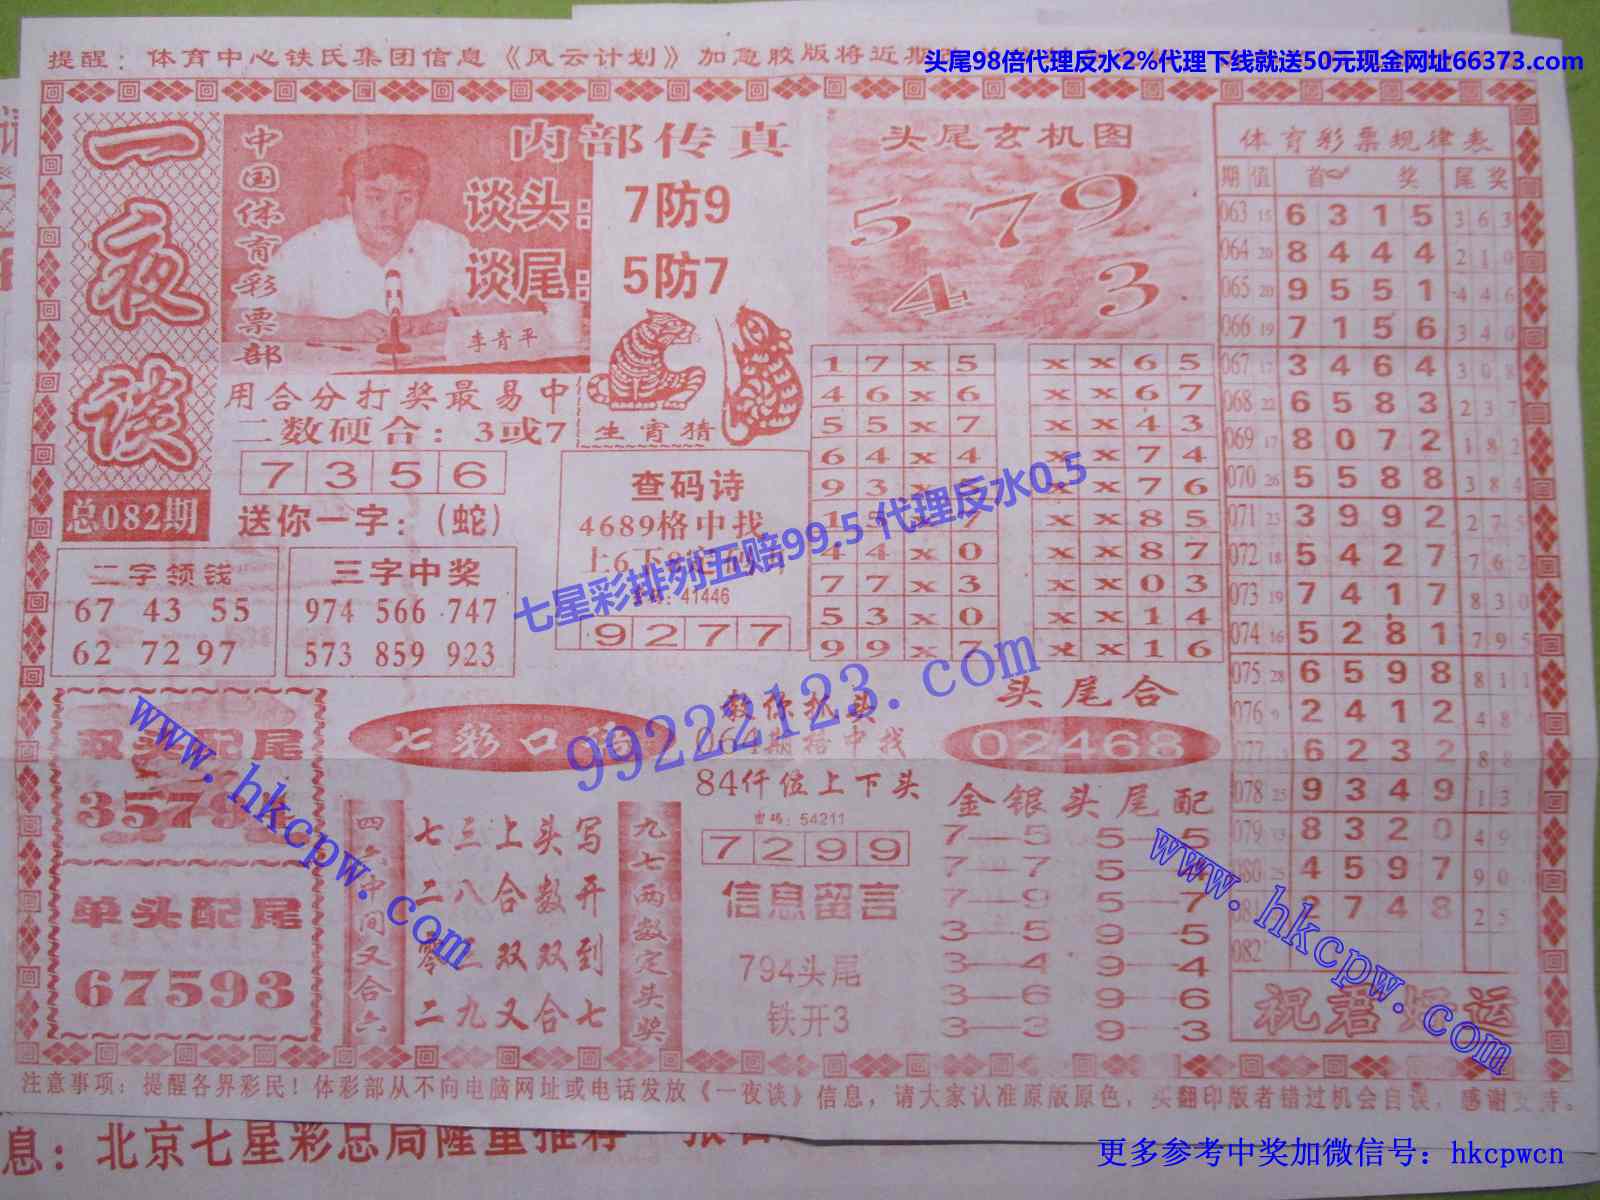 提醒：体育中心铁氏集团信息《风云计划》加急胶版将近期
头尾98倍代理反水2%代理下线就送50元现金网址66373.com
一夜谈
总082期
中国体育彩票部
内部传真
谈头：7防9
谈尾：5防7
李青平
用合分打奖最易中
二数硬合：3或7
7 3 5 6
送你一字：（蛇）
生宵猜
头尾玄机图
5 7 9
4 3
二字领钱
67 43 55
62 72 97
三字中奖
974 566 747
573 859 923
查码诗
4689格中找
41446
9 2 7 7
1 7 x 5
4 6 x 6
5 5 x 7
6 4 x 4
4 4 x 0
7 7 x 3
5 3 x 0
9 9 x 7
x x 6 5
x x 6 7
x x 4 3
x x 7 4
x x 7 6
x x 8 5
x x 8 7
x x 0 3
x x 1 4
x x 1 6
七星彩排列五赔99.5 代理反水0.5
99222123.com
www.hkcpw.com
双头配尾
单头配尾
67593
七彩口
四六中间又合六
七三上头写
二八合数开
双双到
二九又合七
九七两数定头奖
84仟位上下头
54211
7 2 9 9
信息留言
794头尾
铁开3
头尾合
02468
金银头尾配
7—5 5—5
7—7 5—4
7—9 5—7
3—5 9—5
3—4 9—4
3—6 9—6
3—3 9—3
www.hkcpw.com
体育彩票规律表
期 值 首 奖 尾奖
063 15 6 3 1 5 3 6 3
064 20 8 4 4 4 2 1 0
065 20 9 5 5 1 4 4 6
066 19 7 1 5 6 3 4 0
067 17 3 4 6 4 3 0 8
068 22 6 5 8 3 2 3 7
069 17 8 0 7 2 1 8 2
070 26 5 5 8 8 3 8 4
071 23 3 9 9 2 2 7 5
072 18 5 4 2 7 7 6 2
073 19 7 4 1 7 8 3 0
074 16 5 2 8 1 7 9 5
075 28 6 5 9 8 8 1 1
076 9 2 4 1 2 4 8
077 6 2 3 2 8 8
078 25 9 3 4 9 1 3
079 13 8 3 2 0 4 9
080 25 4 5 9 7 9 0
081 2 7 4 8 2 5
082
祝君好运
注意事项：提醒各界彩民！体彩部从不向电脑网址或电话发放《一夜谈》信息，请大家认准原版原色，买翻印版者错过机会自误，感谢支持。
息：北京七星彩总局隆重推荐
更多参考中奖加微信号：hkcpwcn